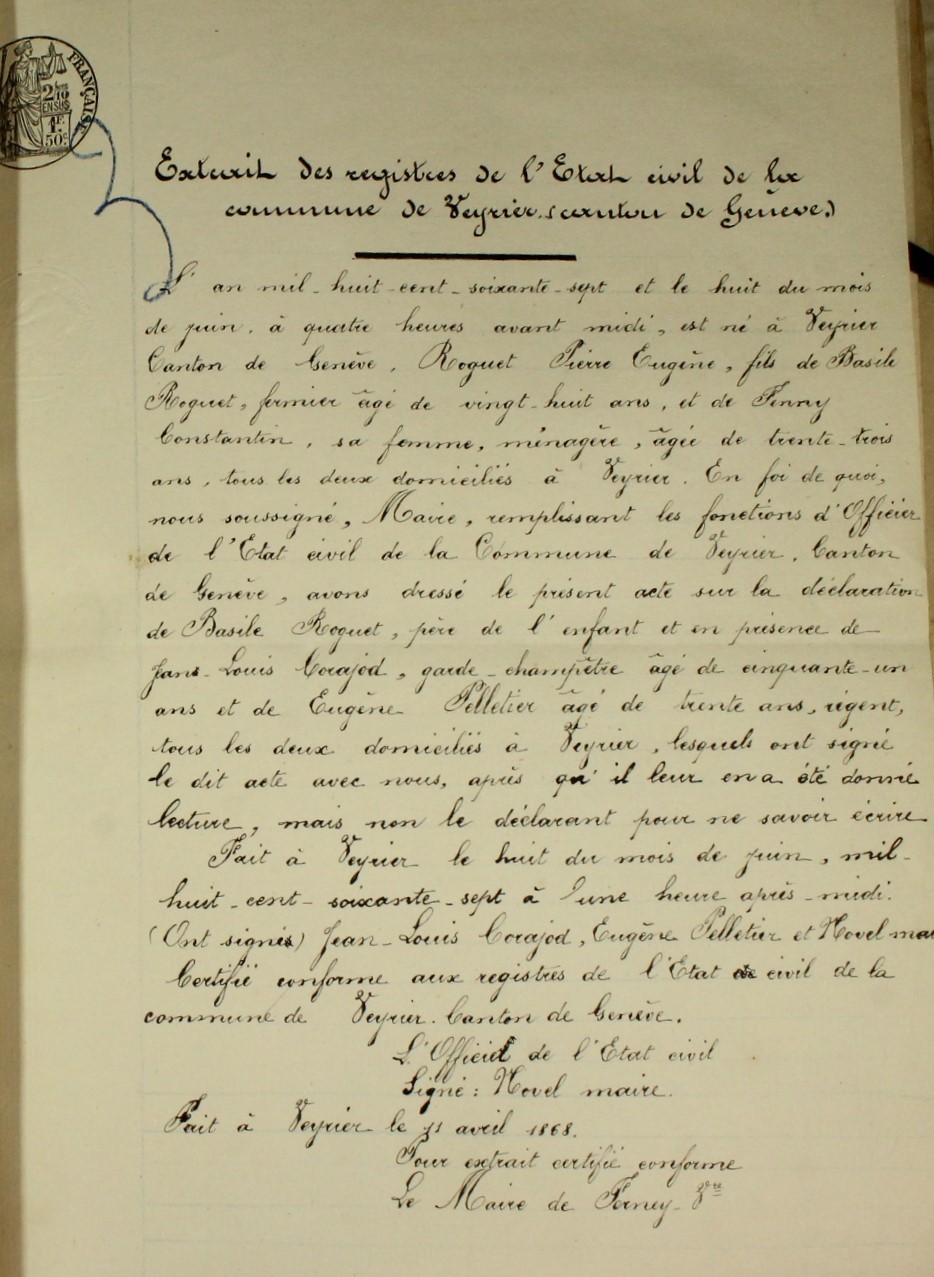 FRANÇAISE
2/10
EN SUS
1F
50c
Extrait des registres de l'Etat civil de la
commune de Veyrier (canton de Genève)
L'an mil-huit-cent-soixante-sept et le huit du mois
de juin, à quatre heures avant midi, est né à Veyrier
Canton de Genève, Roguet Pierre Eugène, fils de Basile
Roguet, fermier âgé de vingt-huit ans, et de Fenny
Constantin, sa femme, ménagère, âgée de trente-trois
ans, tous les deux domiciliés à Veyrier. En foi de quoi,
nous soussigné, Maire, remplissant les fonctions d'Officier
de l'Etat civil de la Commune de Veyrier, Canton
de Genève, avons dressé le présent acte sur la déclaration
de Basile Roguet, père de l'enfant et en présence de
Jans-Louis Corajod, garde-champêtre âgé de cinquante-un
ans et de Eugène Pelletier âgé de trente ans, régent,
tous les deux domiciliés à Veyrier, lesquels ont signé
le dit acte avec nous, après qu'il leur en a été donné
lecture, mais non le déclarant pour ne savoir écrire
Fait à Veyrier le huit du mois de juin, mil-
huit-cent-soixante-sept à une heure après-midi.
(Ont signés) Jean-Louis Corajod, Eugène Pelletier et Hovel mai
Certifié conforme aux registres de l'Etat civil de la
commune de Veyrier. Canton de Genève.
L'Officier de l'Etat civil
Signé: Hovel maire.
Fait à Veyrier le 11 avril 1868.
Pour extrait certifié conforme
Le Maire de Ferney-Vre